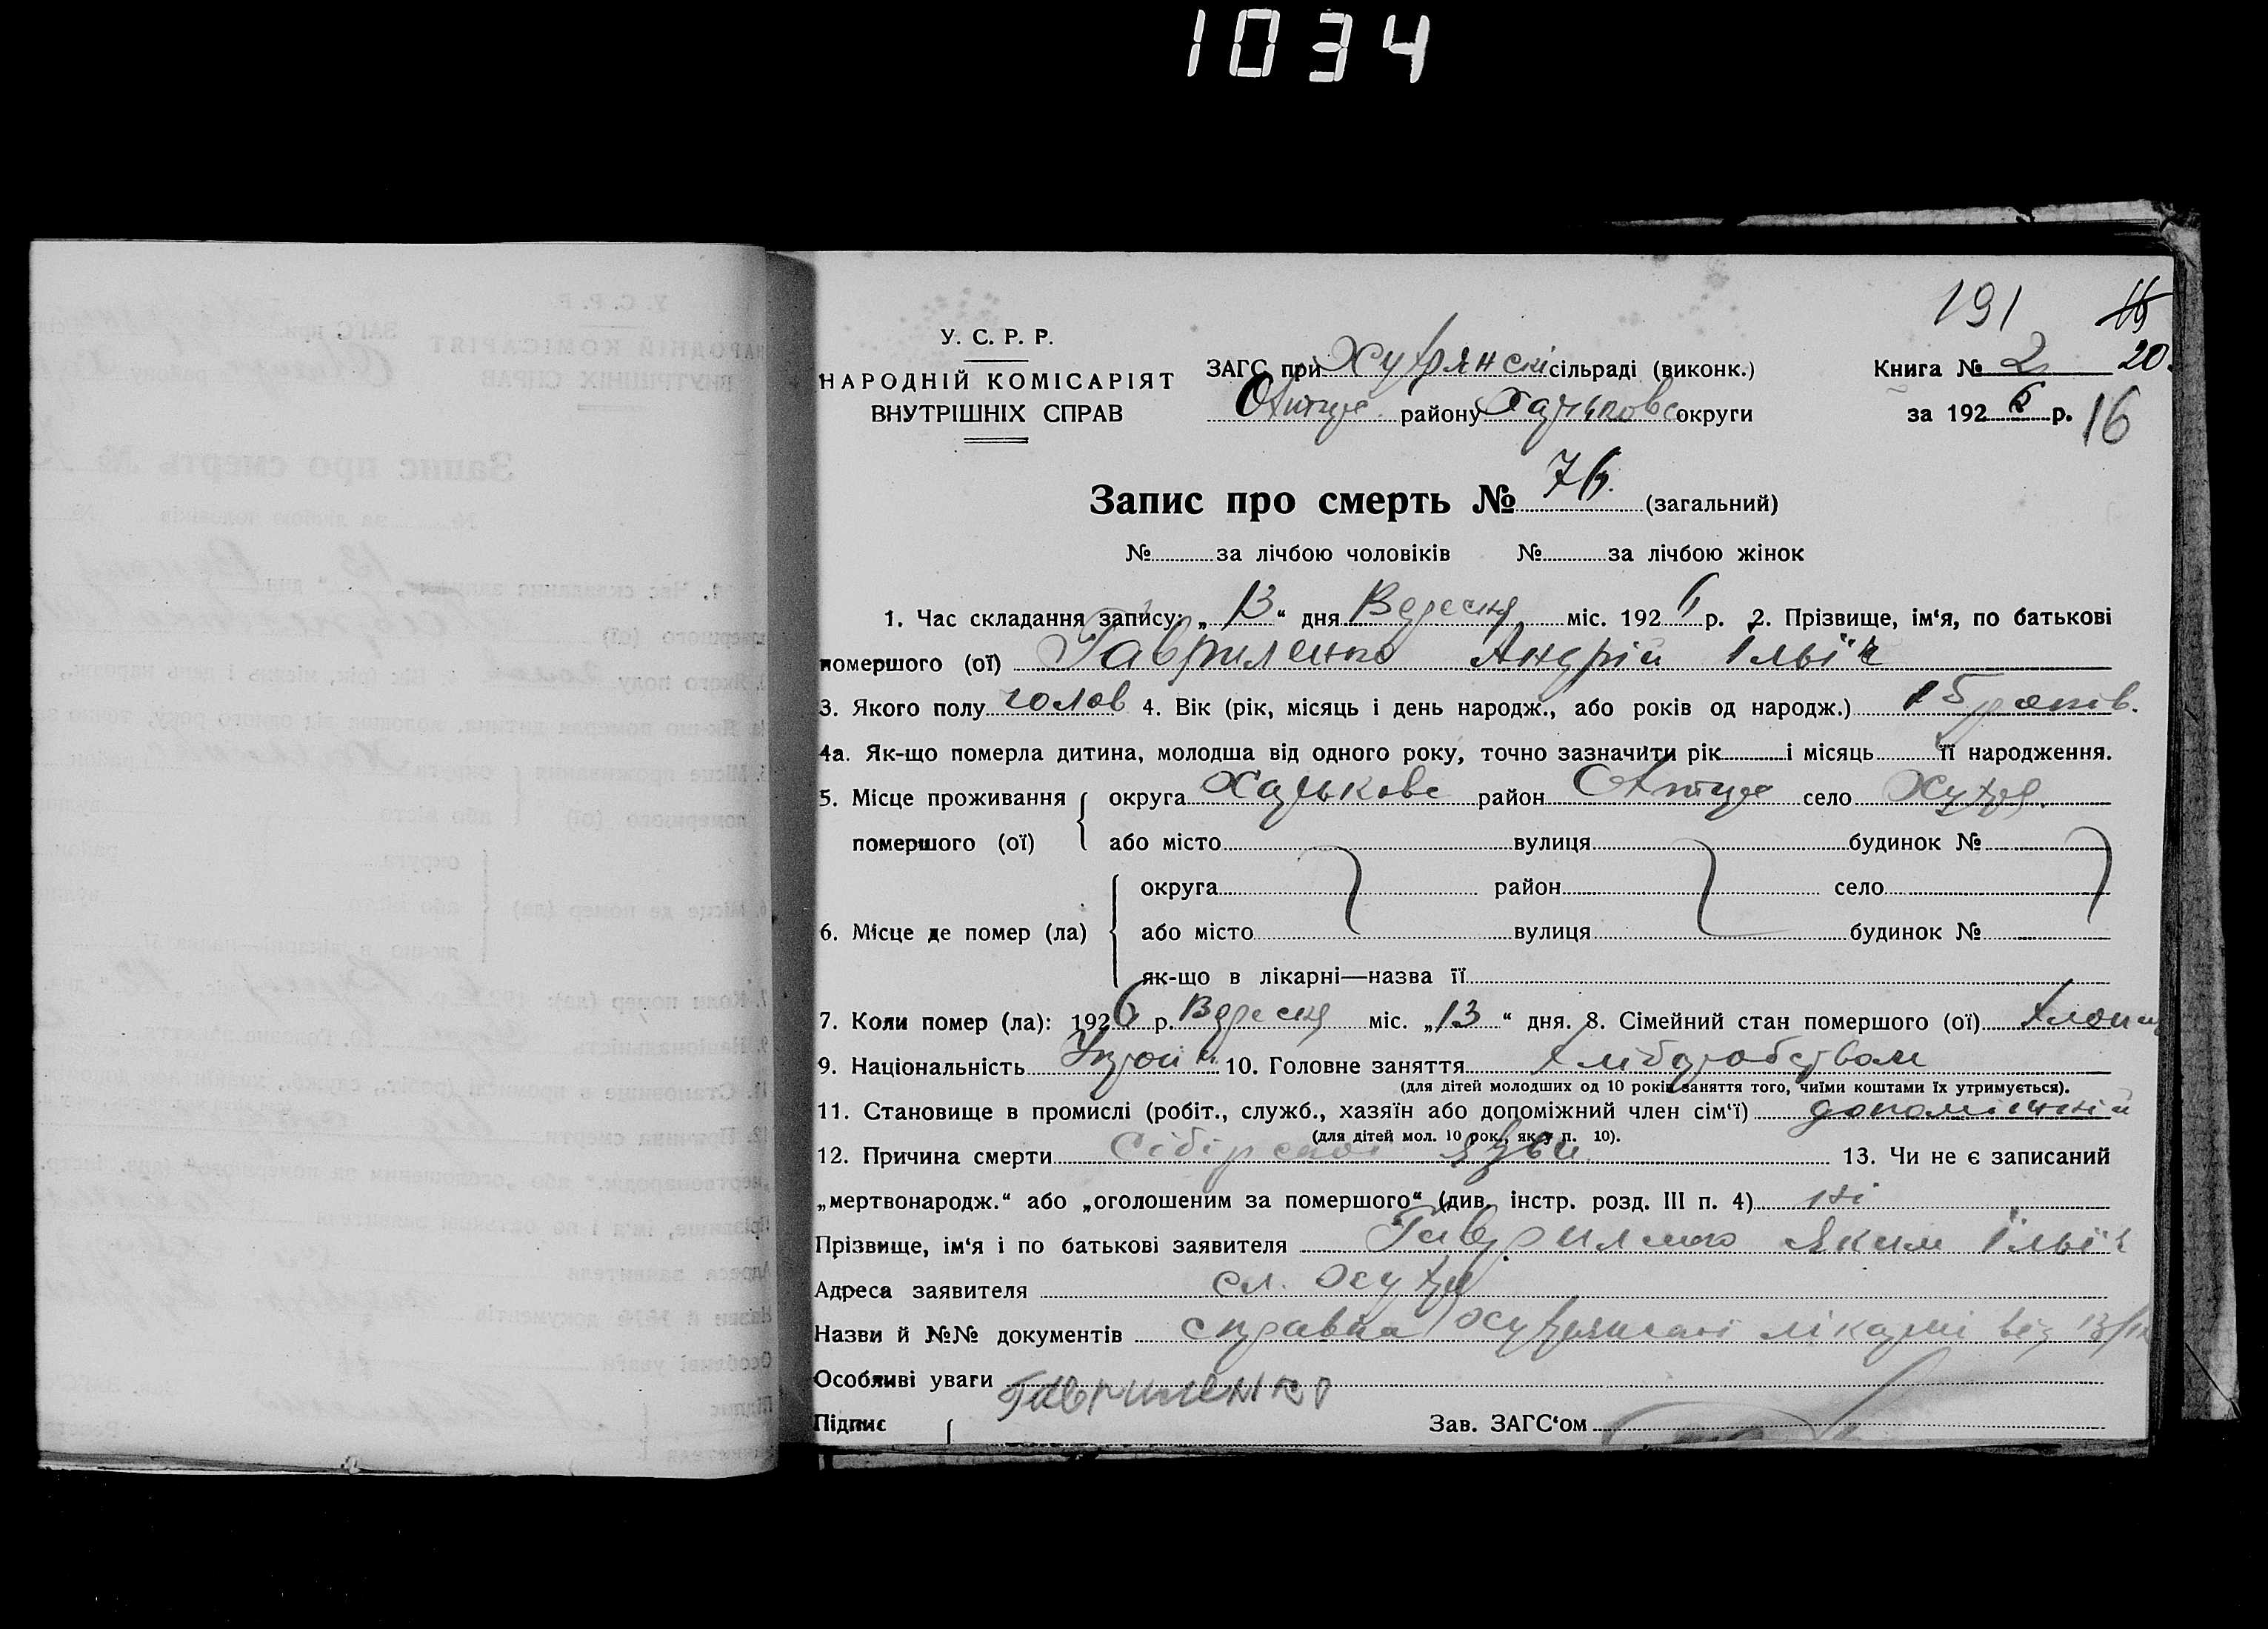 1034
191 16
У. С. Р. Р.
НАРОДНІЙ КОМІСАРІЯТ
ВНУТРІШНІХ СПРАВ
ЗАГС при Хухрянскі сільраді (виконк.)
Охтир. району Харьковс округи
Книга № 2 20
за 1926 р. 16
Запис про смерть № 76. (загальний)
№ за лічбою чоловіків № за лічбою жінок
1. Час складання запису: „ 13 “ дня Вересня міс. 1926 р. 2. Прізвище, ім‘я, по батькові
помершого (ої) Гавриленко Андрій Ільїч
3. Якого полу голов 4. Вік (рік, місяць і день народж., або років од народж.) 15 років.
4а. Як-що померла дитина, молодша від одного року, точно зазначити рік і місяць її народження.
5. Місце проживання округа Харькове район Охтир село Хухря.
помершого (ої) або місто вулиця будинок №
округа район село
6. Місце де помер (ла) або місто вулиця будинок №
як-що в лікарні—назва її
7. Коли помер (ла): 1926 р. Вересня міс. „13“ дня. 8. Сімейний стан помершого (ої) Хлопець
9. Національність 10. Головне заняття Хліборобством
(для дітей молодших од 10 років заняття того, чиїми коштами їх утримується).
11. Становище в промислі (робіт., служб., хазяїн або допоміжний член сім‘ї) допоміжній
(для дітей мол. 10 рок., як у п. 10).
12. Причина смерти Сібірскої язви 13. Чи не є записаний
„мертвонародж.“ або „оголошеним за помершого“ (див. інстр. розд. III п. 4) ні
Прізвище, ім‘я і по батькові заявителя Гавриленко Яким Ільїч
Адреса заявителя сл. Хухря
Назви й №№ документів справка Хухрянскої лікарні від 13/IX
Особливі уваги
Гавриленко
Підпис Зав. ЗАГС‘ом